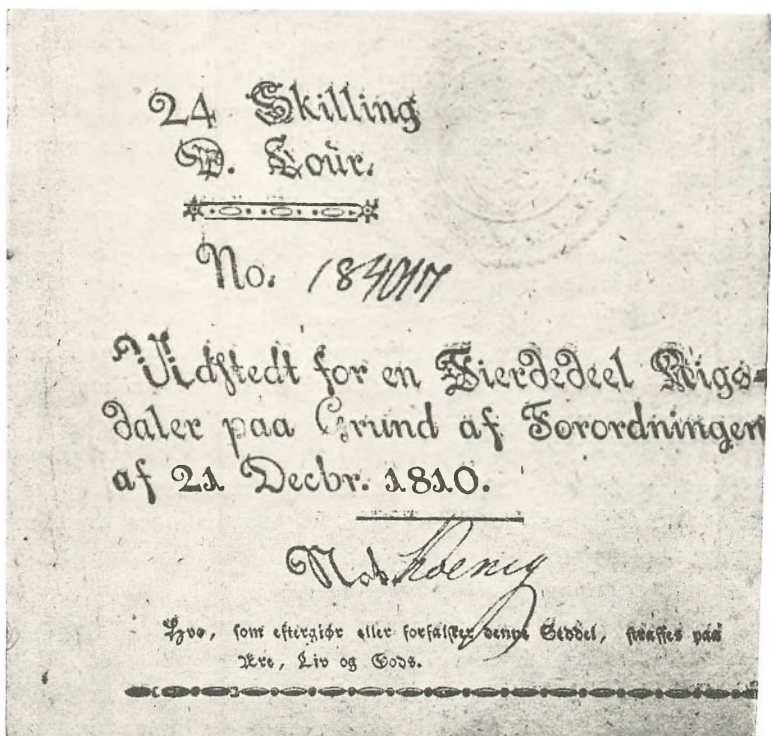 24 Skilling
D. Cour.
No. 184017
Udstedt for en Fierdedeel Rigs-
daler paa Grund af Forordningen
af 21 Decbr. 1810.
Not. Koenig
Hvo, som eftergiør eller forfalsker denne Seddel, straffes paa
Ære, Liv og Gods.